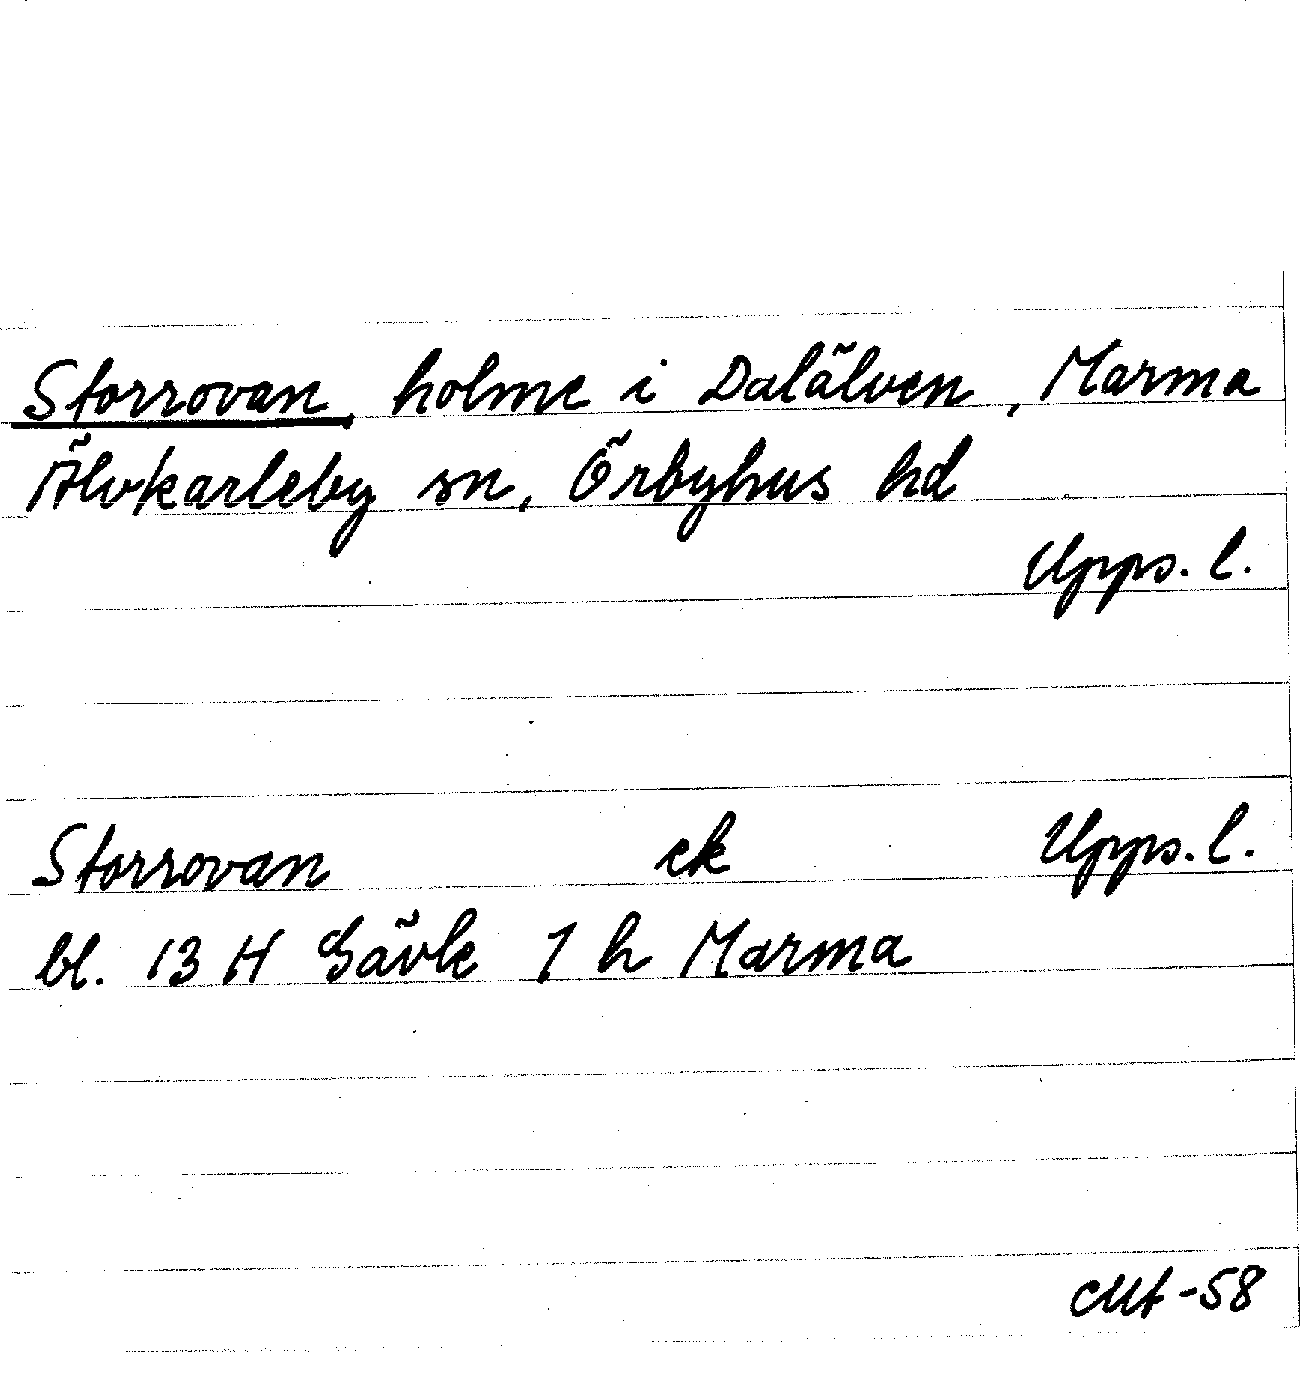 Storrovan, holme i Dalälven, Marma
Älvkarleby sn, Örbyhus hd
Upps. l.
Storrovan ek Upps. l.
bl. 13 H Gävle 1 h Marma
-58